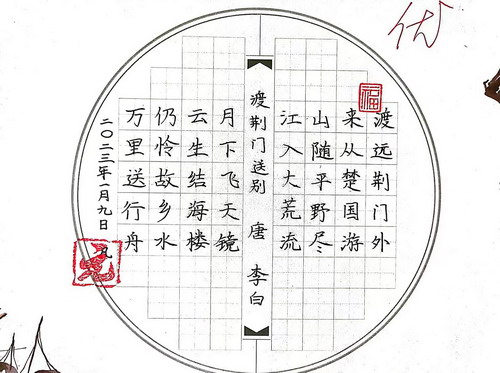 优
福
渡远荆门外
来从楚国游
山随平野尽
江入大荒流
渡荆门送别 唐 李白
月下飞天镜
云生结海楼
仍怜故乡水
万里送行舟
二〇二三年一月九日